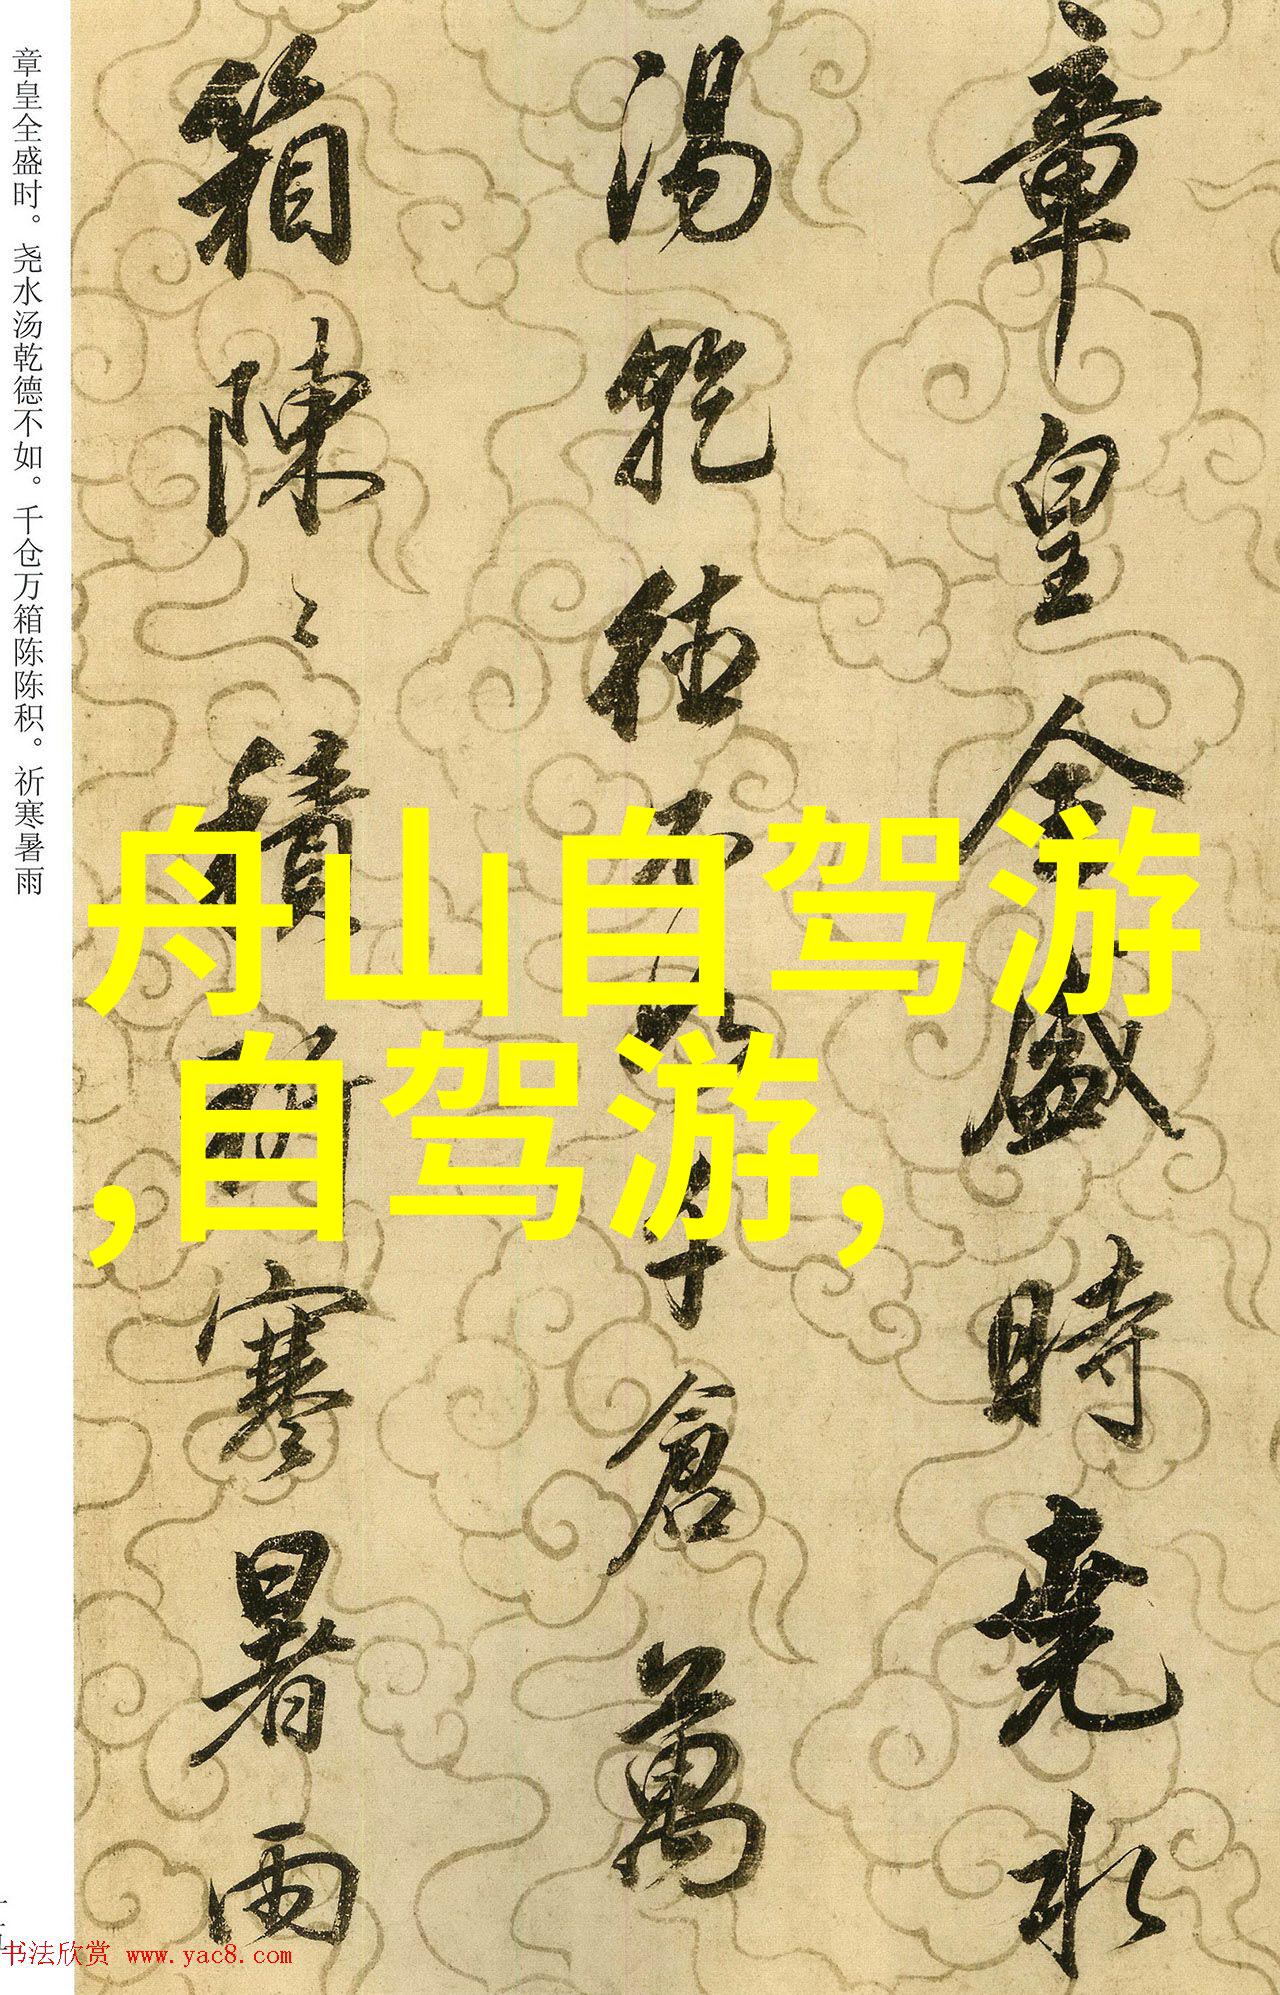 章皇全盛时。尧水汤乾德不如。千仓万箱陈陈积。祈寒暑雨
章皇全盛時堯水
湯乾德不如千倉萬
箱陳〻積祈寒暑雨
舟山自驾游
,自驾游,
书法欣赏 www.yac8.com